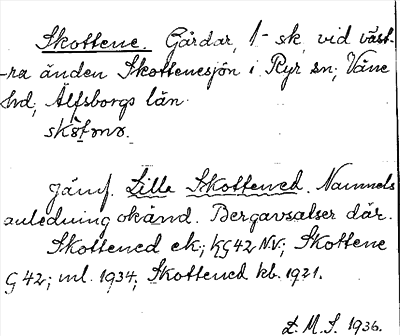 Skottene. Gårdar, 1 sk, vid väst-
-ra änden Skottenesjön i Ryr sn; Väne
hd, Älfsborgs län.
Jämf. Lille Skottened. Namnets
anledning okänd. Bergavsatser där.
Skottened ek.; kG42 NV; Skottene
G42; ml. 1934; Skottened kb. 1921.
E. M. S. 1936.